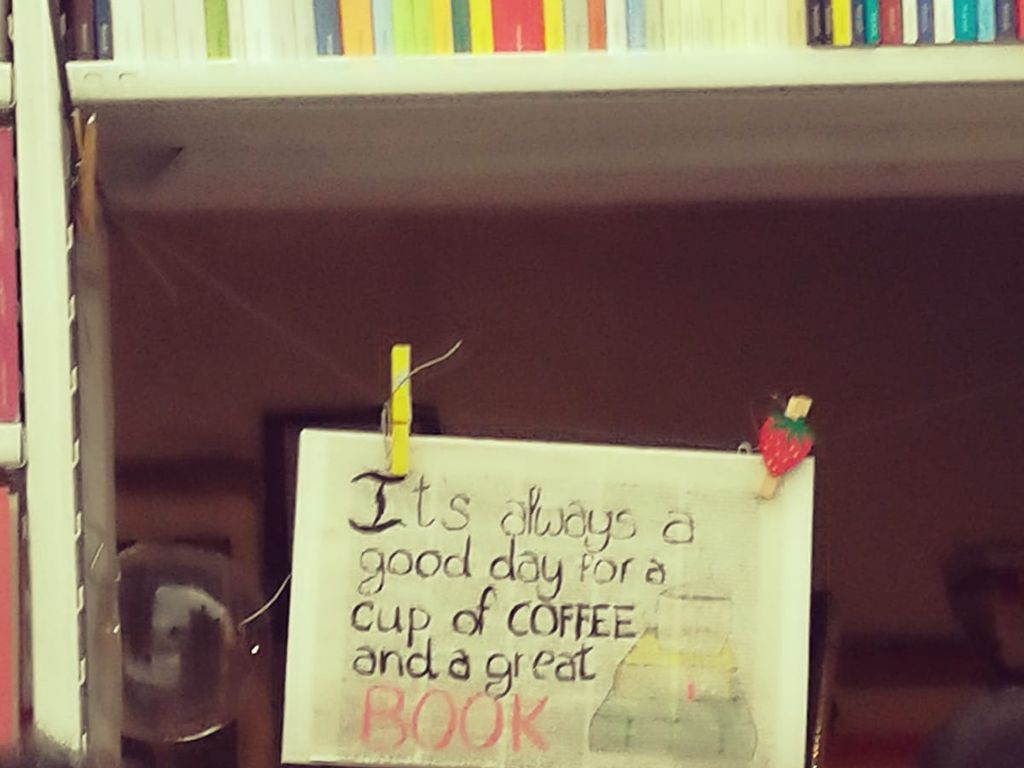 Its always a
good day for a
cup of COFFEE
and a great
BOOK